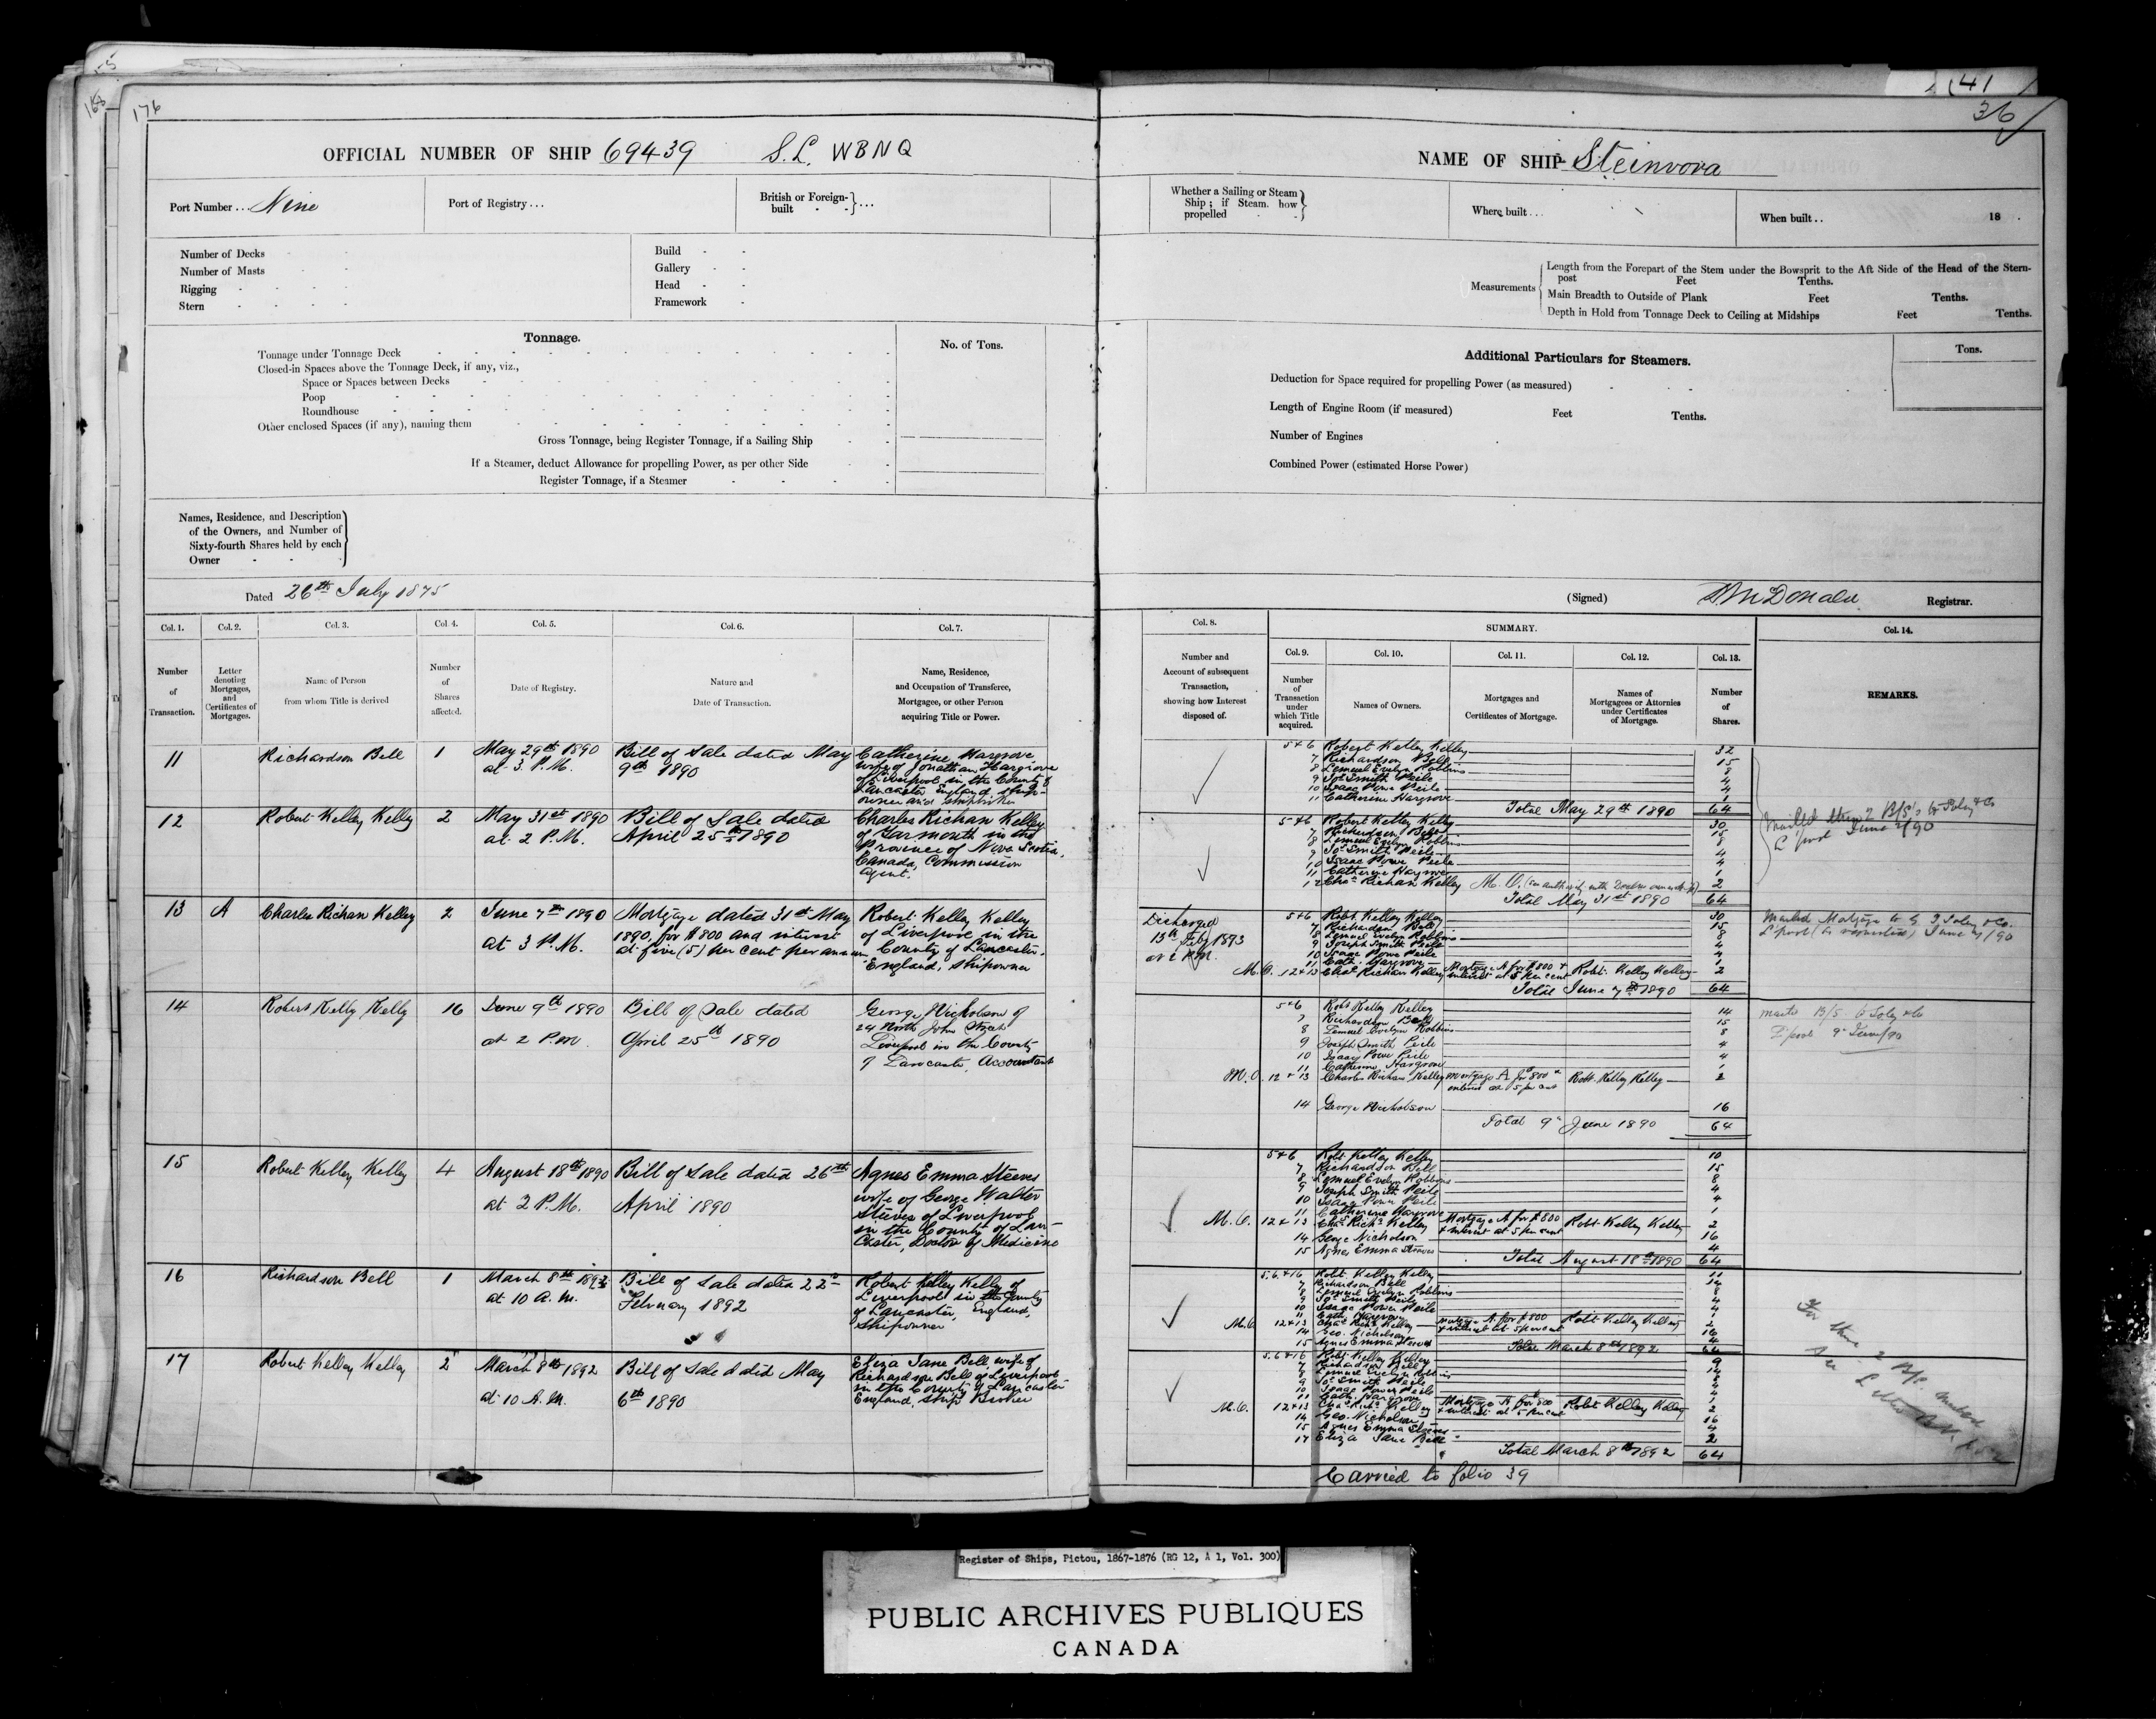 176
168
141
36
OFFICIAL NUMBER OF SHIP 69439 S.L. WBNQ
NAME OF SHIP Steinvora
Port Number ... Nine
Port of Registry ...
British or Foreign-built - - } ...
Whether a Sailing or Steam Ship; if Steam, how propelled - -
Where built ...
When built .. 18 .
Number of Decks
Number of Masts
Rigging - - - -
Stern - - - -
Build - -
Gallery - -
Head - -
Framework -
Measurements
Length from the Forepart of the Stem under the Bowsprit to the Aft Side of the Head of the Stern-
post Feet Tenths.
Main Breadth to Outside of Plank Feet Tenths.
Depth in Hold from Tonnage Deck to Ceiling at Midships Feet Tenths.
Tonnage.
No. of Tons.
Tonnage under Tonnage Deck
Closed-in Spaces above the Tonnage Deck, if any, viz.,
Space or Spaces between Decks
Poop
Roundhouse
Other enclosed Spaces (if any), naming them
Gross Tonnage, being Register Tonnage, if a Sailing Ship
If a Steamer, deduct Allowance for propelling Power, as per other Side
Register Tonnage, if a Steamer
Additional Particulars for Steamers.
Tons.
Deduction for Space required for propelling Power (as measured)
Length of Engine Room (if measured) Feet Tenths.
Number of Engines
Combined Power (estimated Horse Power)
Names, Residence, and Description
of the Owners, and Number of
Sixty-fourth Shares held by each
Owner - - -
Dated 26th July 1875
(Signed) McDonald Registrar.
Col. 1. Col. 2. Col. 3. Col. 4. Col. 5. Col. 6. Col. 7.
Number of Transaction.
Letter denoting Mortgages, and Certificates of Mortgages.
Name of Person from whom Title is derived
Number of Shares affected.
Date of Registry.
Nature and Date of Transaction.
Name, Residence, and Occupation of Transferee, Mortgagee, or other Person acquiring Title or Power.
11 Richardson Bell 1 May 29th 1890 Bill of Sale dated May Catherine Hargrove
at 3 P.M. 9th 1890 wife of Jonathan Hargrove
of Liverpool in the County of
Lancaster England ship-
owner and shipbroker
12 Robert Kelley Kelley 2 May 31st 1890 Bill of Sale dated Charles Richan Kelley
at 2 P.M. April 25th 1890 of Yarmouth in the
Province of Nova Scotia,
Canada, Commission
Agent.
13 A Charles Richan Kelley 2 June 7th 1890 Mortgage dated 31st May Robert Kelley Kelley
at 3 P.M. 1890, for $800 and interest of Liverpool in the
at five (5) per cent per annum County of Lancaster,
England, Shipowner
14 Robert Kelly Kelly 16 June 9th 1890 Bill of Sale dated George Nicholson of
at 2 P.M. April 25th 1890 24 North John Street
Liverpool in the County
of Lancaster, Accountant
15 Robert Kelley Kelley 4 August 18th 1890 Bill of Sale dated 26th Agnes Emma Steeves
at 2 P.M. April 1890 wife of George Walter
Steeves of Liverpool
in the County of Lan-
caster, Doctor of Medicine
16 Richardson Bell 1 March 8th 1892 Bill of Sale dated 22nd Robert Kelley Kelley of
at 10 A.M. February 1892 Liverpool in the County
of Lancaster, England,
Shipowner
17 Robert Kelley Kelley 2 March 8th 1892 Bill of Sale dated May Eliza Jane Bell, wife of
at 10 A.M. 6th 1890 Richardson Bell of Liverpool
in the County of Lancaster
England, Ship Broker
Col. 8.
Number and Account of subsequent Transaction, showing how Interest disposed of.
SUMMARY.
Col. 9. Col. 10. Col. 11. Col. 12. Col. 13.
Number of Transaction under which Title acquired.
Names of Owners.
Mortgages and Certificates of Mortgage.
Names of Mortgagees or Attornies under Certificates of Mortgage.
Number of Shares.
Col. 14.
REMARKS.
5+6 Robert Kelley Kelley 32
7 Richardson Bell 15
8 Lemuel Evelyn Robbins 8
9 Jos. Smith Peile 4
10 Isaac Powe Peile 4
11 Catherine Hargrove 1
Total May 29th 1890 64
5+6 Robert Kelley Kelley 30
7 Richardson Bell 15
8 Lemuel Evelyn Robbins 8
9 Jos. Smith Peile 4
10 Isaac Powe Peile 4
11 Catherine Hargrove 1
12 Chas. Richan Kelley M.O. 2
Total May 31st 1890 64
Mailed these 2 B/S's to Soley & Co
L'pool June 2/90
Discharged
13th Feby 1893
5+6 Robt. Kelley Kelley 30
7 Richardson Bell 15
8 Lemuel Evelyn Robbins 8
9 Joseph Smith Peile 4
10 Isaac Powe Peile 4
11 Cath. Hargrove 1
M.O. 12+13 Chas. Richan Kelley Mortgage A for $800 + interest at 5 per cent Robt. Kelley Kelley 2
Total June 7th 1890 64
Mailed Mortgage to Soley & Co.
L'pool
5+6 Robt Kelley Kelley 14
7 Richardson Bell 15
8 Lemuel Evelyn Robbins 8
9 Joseph Smith Peile 4
10 Isaac Powe Peile 4
11 Catherine Hargrove 1
M.O. 12+13 Charles Richan Kelley Mortgage A for $800 + interest at 5 per cent Robt. Kelley Kelley 2
14 George Nicholson 16
Total 9th June 1890 64
B/S to Soley & Co
L'pool 9th June/90
5+6 Robt. Kelley Kelley 10
7 Richardson Bell 15
8 Lemuel Evelyn Robbins 8
9 Joseph Smith Peile 4
10 Isaac Powe Peile 4
11 Catherine Hargrove 1
M.O. 12+13 Chas Richn Kelley Mortgage A for $800 + interest at 5 per cent Robt Kelley Kelley 2
14 George Nicholson 16
15 Agnes Emma Steeves 4
Total August 18th 1890 64
5.6.+16 Robt. Kelley Kelley 11
7 Richardson Bell 14
8 Lemuel Evelyn Robbins 8
9 Jos. Smith Peile 4
10 Isaac Powe Peile 4
11 Cath. Hargrove 1
M.O. 12+13 Chas Richn Kelley Mortgage A for $800 + interest at 5 per cent Robt Kelley Kelley 2
14 Geo. Nicholson 16
15 Agnes Emma Steeves 4
Total March 8th 1892 64
5.6+16 Robt. Kelley Kelley 9
7 Richardson Bell 14
8 Lemuel Evelyn Robbins 8
9 Jos. Smith Peile 4
10 Isaac Powe Peile 4
11 Cath. Hargrove 1
M.O. 12+13 Chas Richn Kelley Mortgage A for $800 + interest at 5 per cent Robt Kelley Kelley 2
14 Geo. Nicholson 16
15 Agnes Emma Steeves 4
17 Eliza Jane Bell 2
Total March 8th 1892 64
Carried to folio 39
Register of Ships, Pictou, 1867-1876 (RG 12, A 1, Vol. 300)
PUBLIC ARCHIVES PUBLIQUES
CANADA